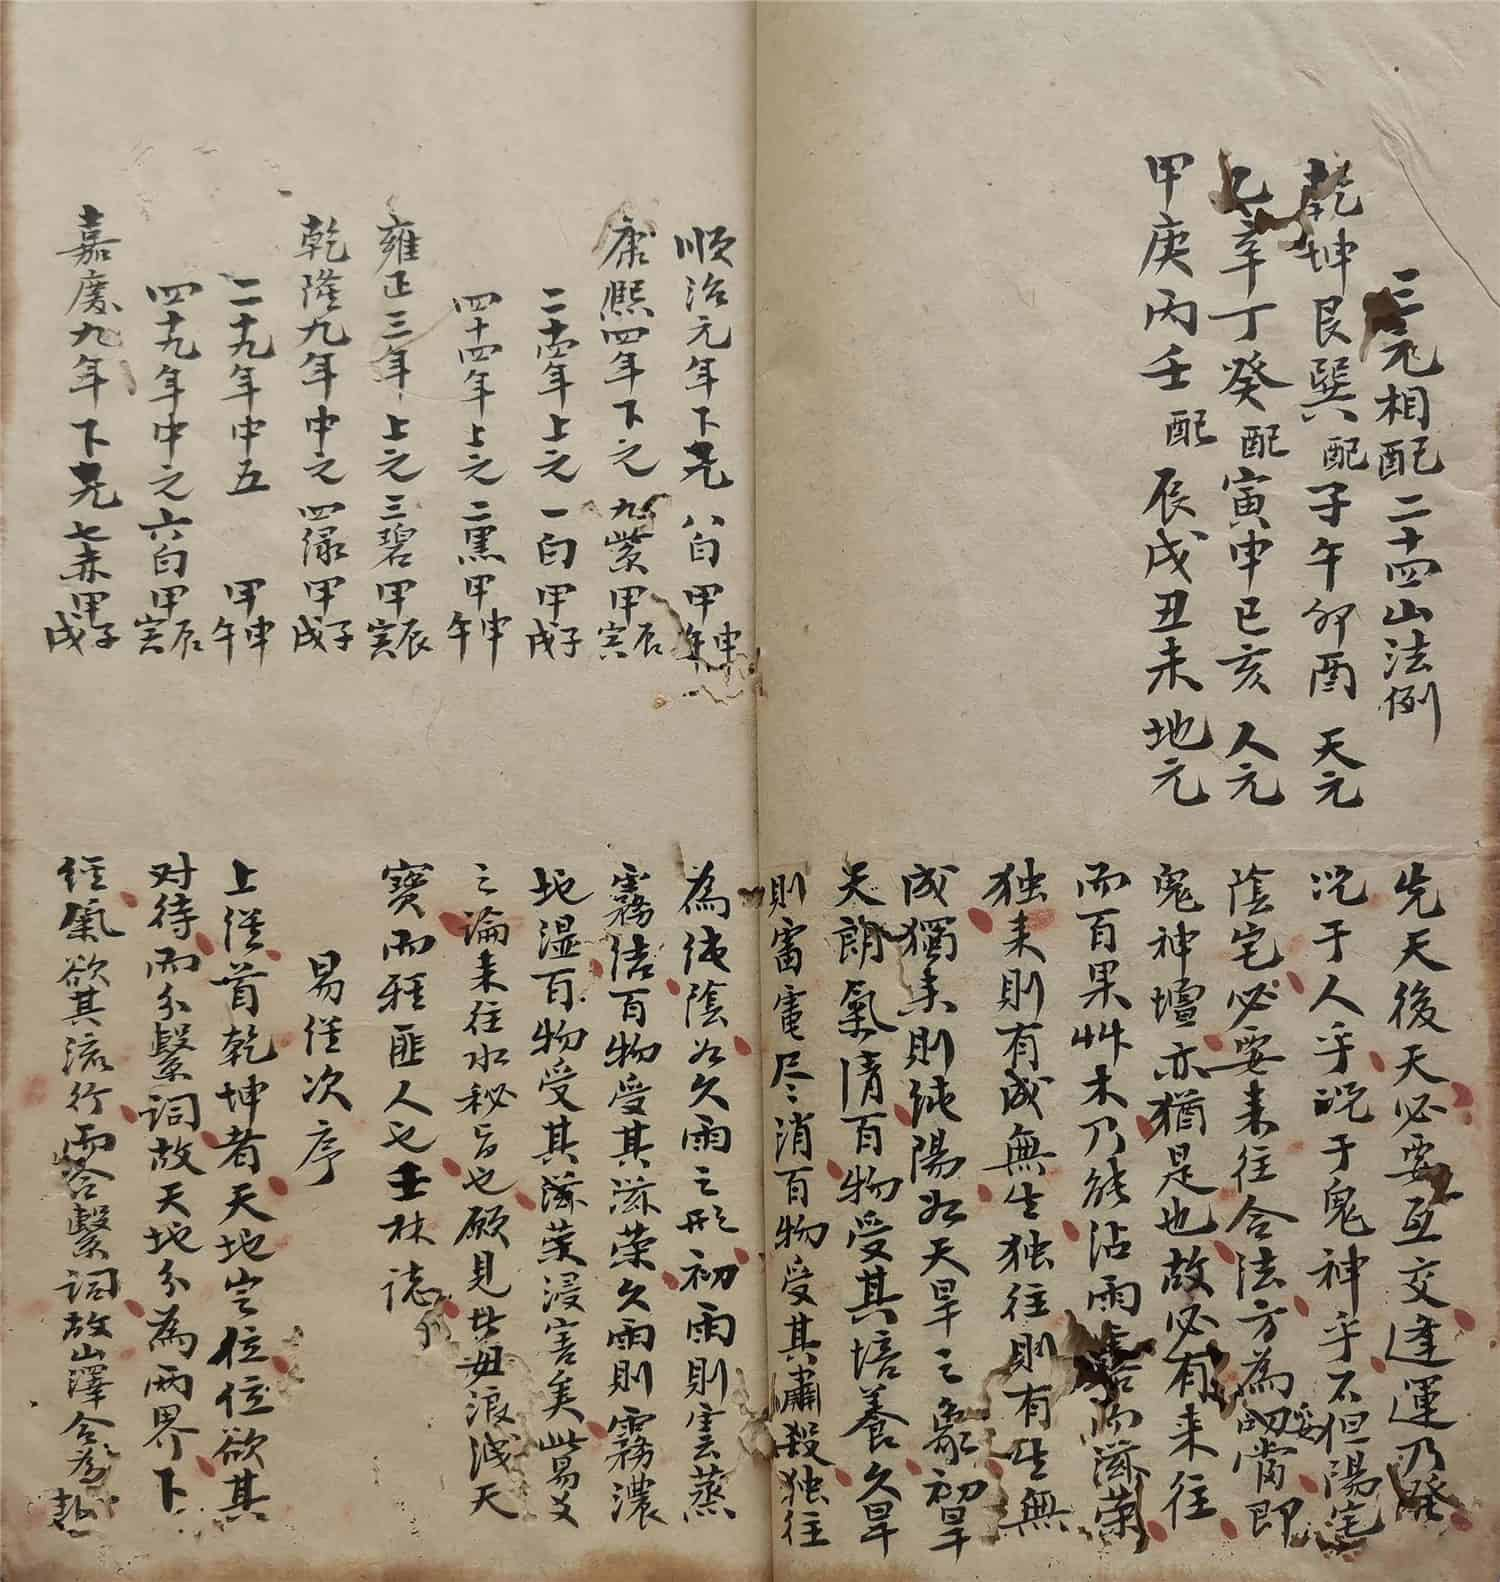 三元相配二十四山法例
乾坤艮巽配子午卯酉天元
乙辛丁癸配寅申巳亥人元
甲庚丙壬配辰戌丑未地元
順治元年下元八白甲申午
康熙四年下之九紫甲辰寅
二十四年上之一白甲子戌
四十四年上之二黑甲申午
雍正三年上之三碧甲辰寅
乾隆九年中之四渌甲子戌
二十九年中五甲申午
四十九年中之六白甲辰寅
嘉慶九年下元七赤甲子戌
先天後天必要互交逢運乃發
况于人乎况于鬼神乎不但陽宅
陰宅必要来往合法方為妥當即
鬼神壇亦猶是也故必有来往
而百果艸木乃能沾雨露而滋荣
独来則有成無生独往則有生無
成獨来則純陽如天旱之象初旱
天朗氣清百物受其培養久旱
則雷電尽消百物受其肅殺独往
為純陰如久雨之形初雨則雲蒸
霧结百物受其滋荣久雨則霧濃
地湿百物受其滋荣浸害矣此易爻
之論来往水秘旨也願見世毋浪洩天
寶而秤匪人也壬林誌
易経次序
上経首乾坤者天地定位位欲其
对待而分繫词故天地分為兩界下
経氣欲其流行而合繫词故山澤合為